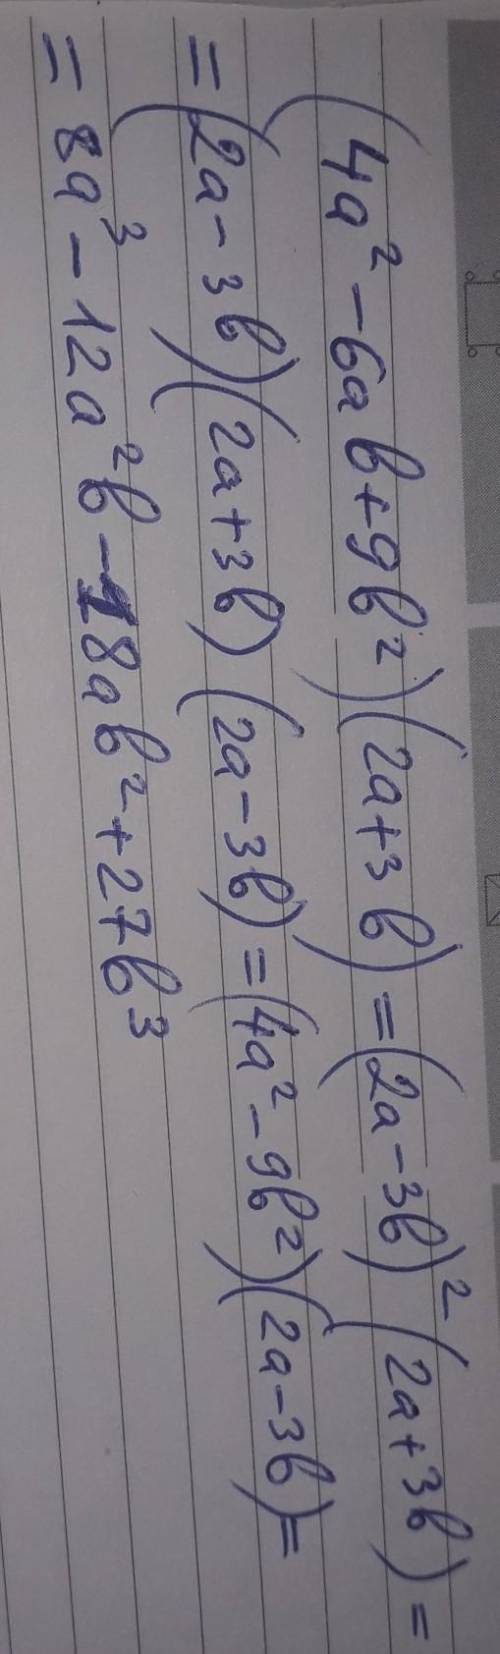 (4a² - 6ab + 9b²)(2a + 3b) = (2a - 3b)²(2a + 3b) =
= (2a - 3b)(2a + 3b)(2a - 3b) = (4a² - 9b²)(2a - 3b) =
= 8a³ - 12a²b - 18ab² + 27b³